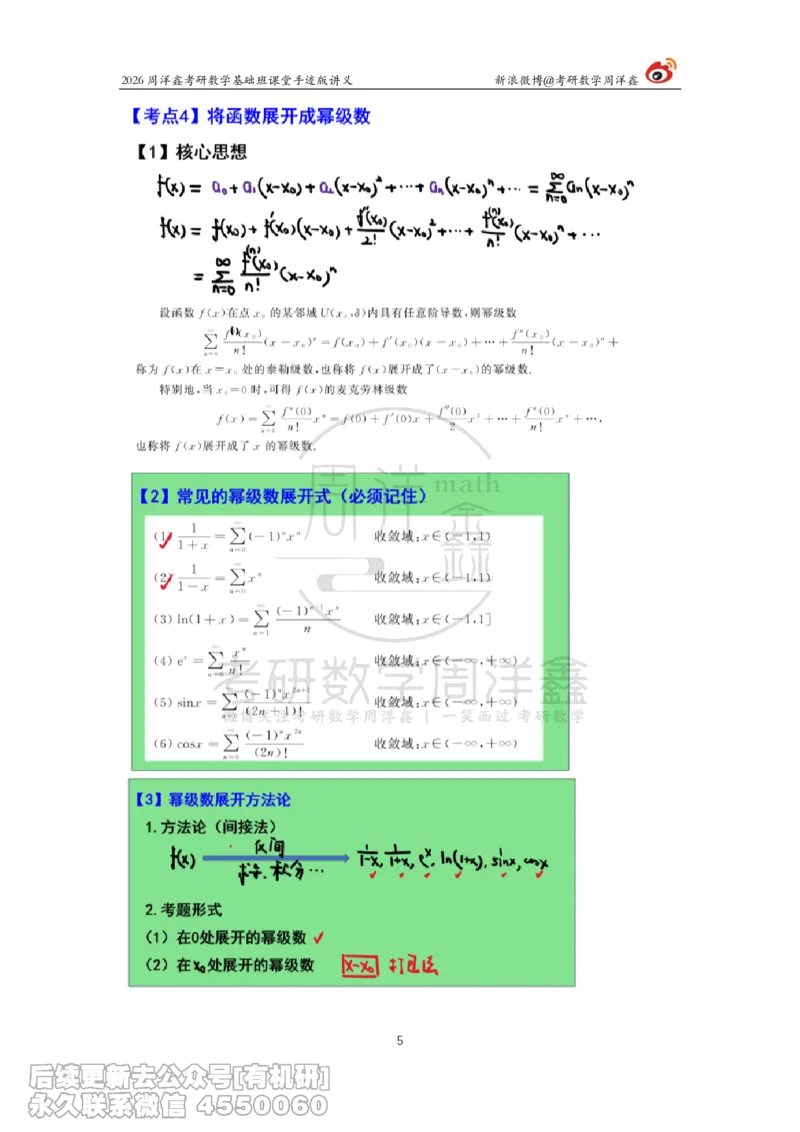 2026周洋鑫考研数学基础班课堂手迹版讲义 新浪微博@考研数学周洋鑫
【考点4】将函数展开成幂级数
【1】核心思想
f(x) = a₀ + a₁(x-x₀) + a₂(x-x₀)² + ⋯ + aₙ(x-x₀)ⁿ + ⋯ = ∑_{n=0}^{∞} aₙ(x-x₀)ⁿ
f(x) = f(x₀) + f'(x₀)(x-x₀) + f''(x₀)/2! (x-x₀)² + ⋯ + f⁽ⁿ⁾(x₀)/n! (x-x₀)ⁿ + ⋯
= ∑_{n=0}^{∞} f⁽ⁿ⁾(x₀)/n! (x-x₀)ⁿ
设函数 f(x)在点 x₀ 的某邻域 U(x₀,δ)内具有任意阶导数,则幂级数
∑_{n=0}^{∞} f⁽ⁿ⁾(x₀)/n! (x-x₀)ⁿ = f(x₀)+f'(x₀)(x-x₀)+⋯+ fⁿ(x₀)/n! (x-x₀)ⁿ+
称为 f(x)在 x=x₀ 处的泰勒级数,也称将 f(x)展开成了(x-x₀)的幂级数.
特别地,当 x₀=0 时,可得 f(x)的麦克劳林级数
f(x) = ∑_{n=0}^{∞} fⁿ(0)/n! xⁿ = f(0)+f'(0)x+ f''(0)/2 x²+⋯+ fⁿ(0)/n! xⁿ+⋯,
也称将 f(x)展开成了 x 的幂级数.
【2】常见的幂级数展开式（必须记住）
(1) 1/(1+x) = ∑_{n=0}^{∞} (-1)ⁿxⁿ 收敛域:x∈(-1,1)
(2) 1/(1-x) = ∑_{n=0}^{∞} xⁿ 收敛域:x∈(-1,1)
(3) ln(1+x) = ∑_{n=1}^{∞} (-1)ⁿ⁻¹xⁿ/n 收敛域:x∈(-1,1]
(4) eˣ = ∑_{n=0}^{∞} xⁿ/n! 收敛域:x∈(-∞,+∞)
(5) sinx = ∑_{n=0}^{∞} (-1)ⁿx²ⁿ⁺¹/(2n+1)! 收敛域:x∈(-∞,+∞)
(6) cosx = ∑_{n=0}^{∞} (-1)ⁿx²ⁿ/(2n)! 收敛域:x∈(-∞,+∞)
周洋鑫 math
考研数学周洋鑫
微博关注考研数学周洋鑫 | 一笑而过 考研数学
【3】幂级数展开方法论
1.方法论（间接法）
f(x) 求导、积分⋯ 1/(1-x), 1/(1+x), eˣ, ln(1+x), sinx, cosx
2.考题形式
（1）在0处展开的幂级数 ✓
（2）在x₀处展开的幂级数 x-x₀ 打包送
5
后续更新去公众号[有机研]
永久联系微信 4550060